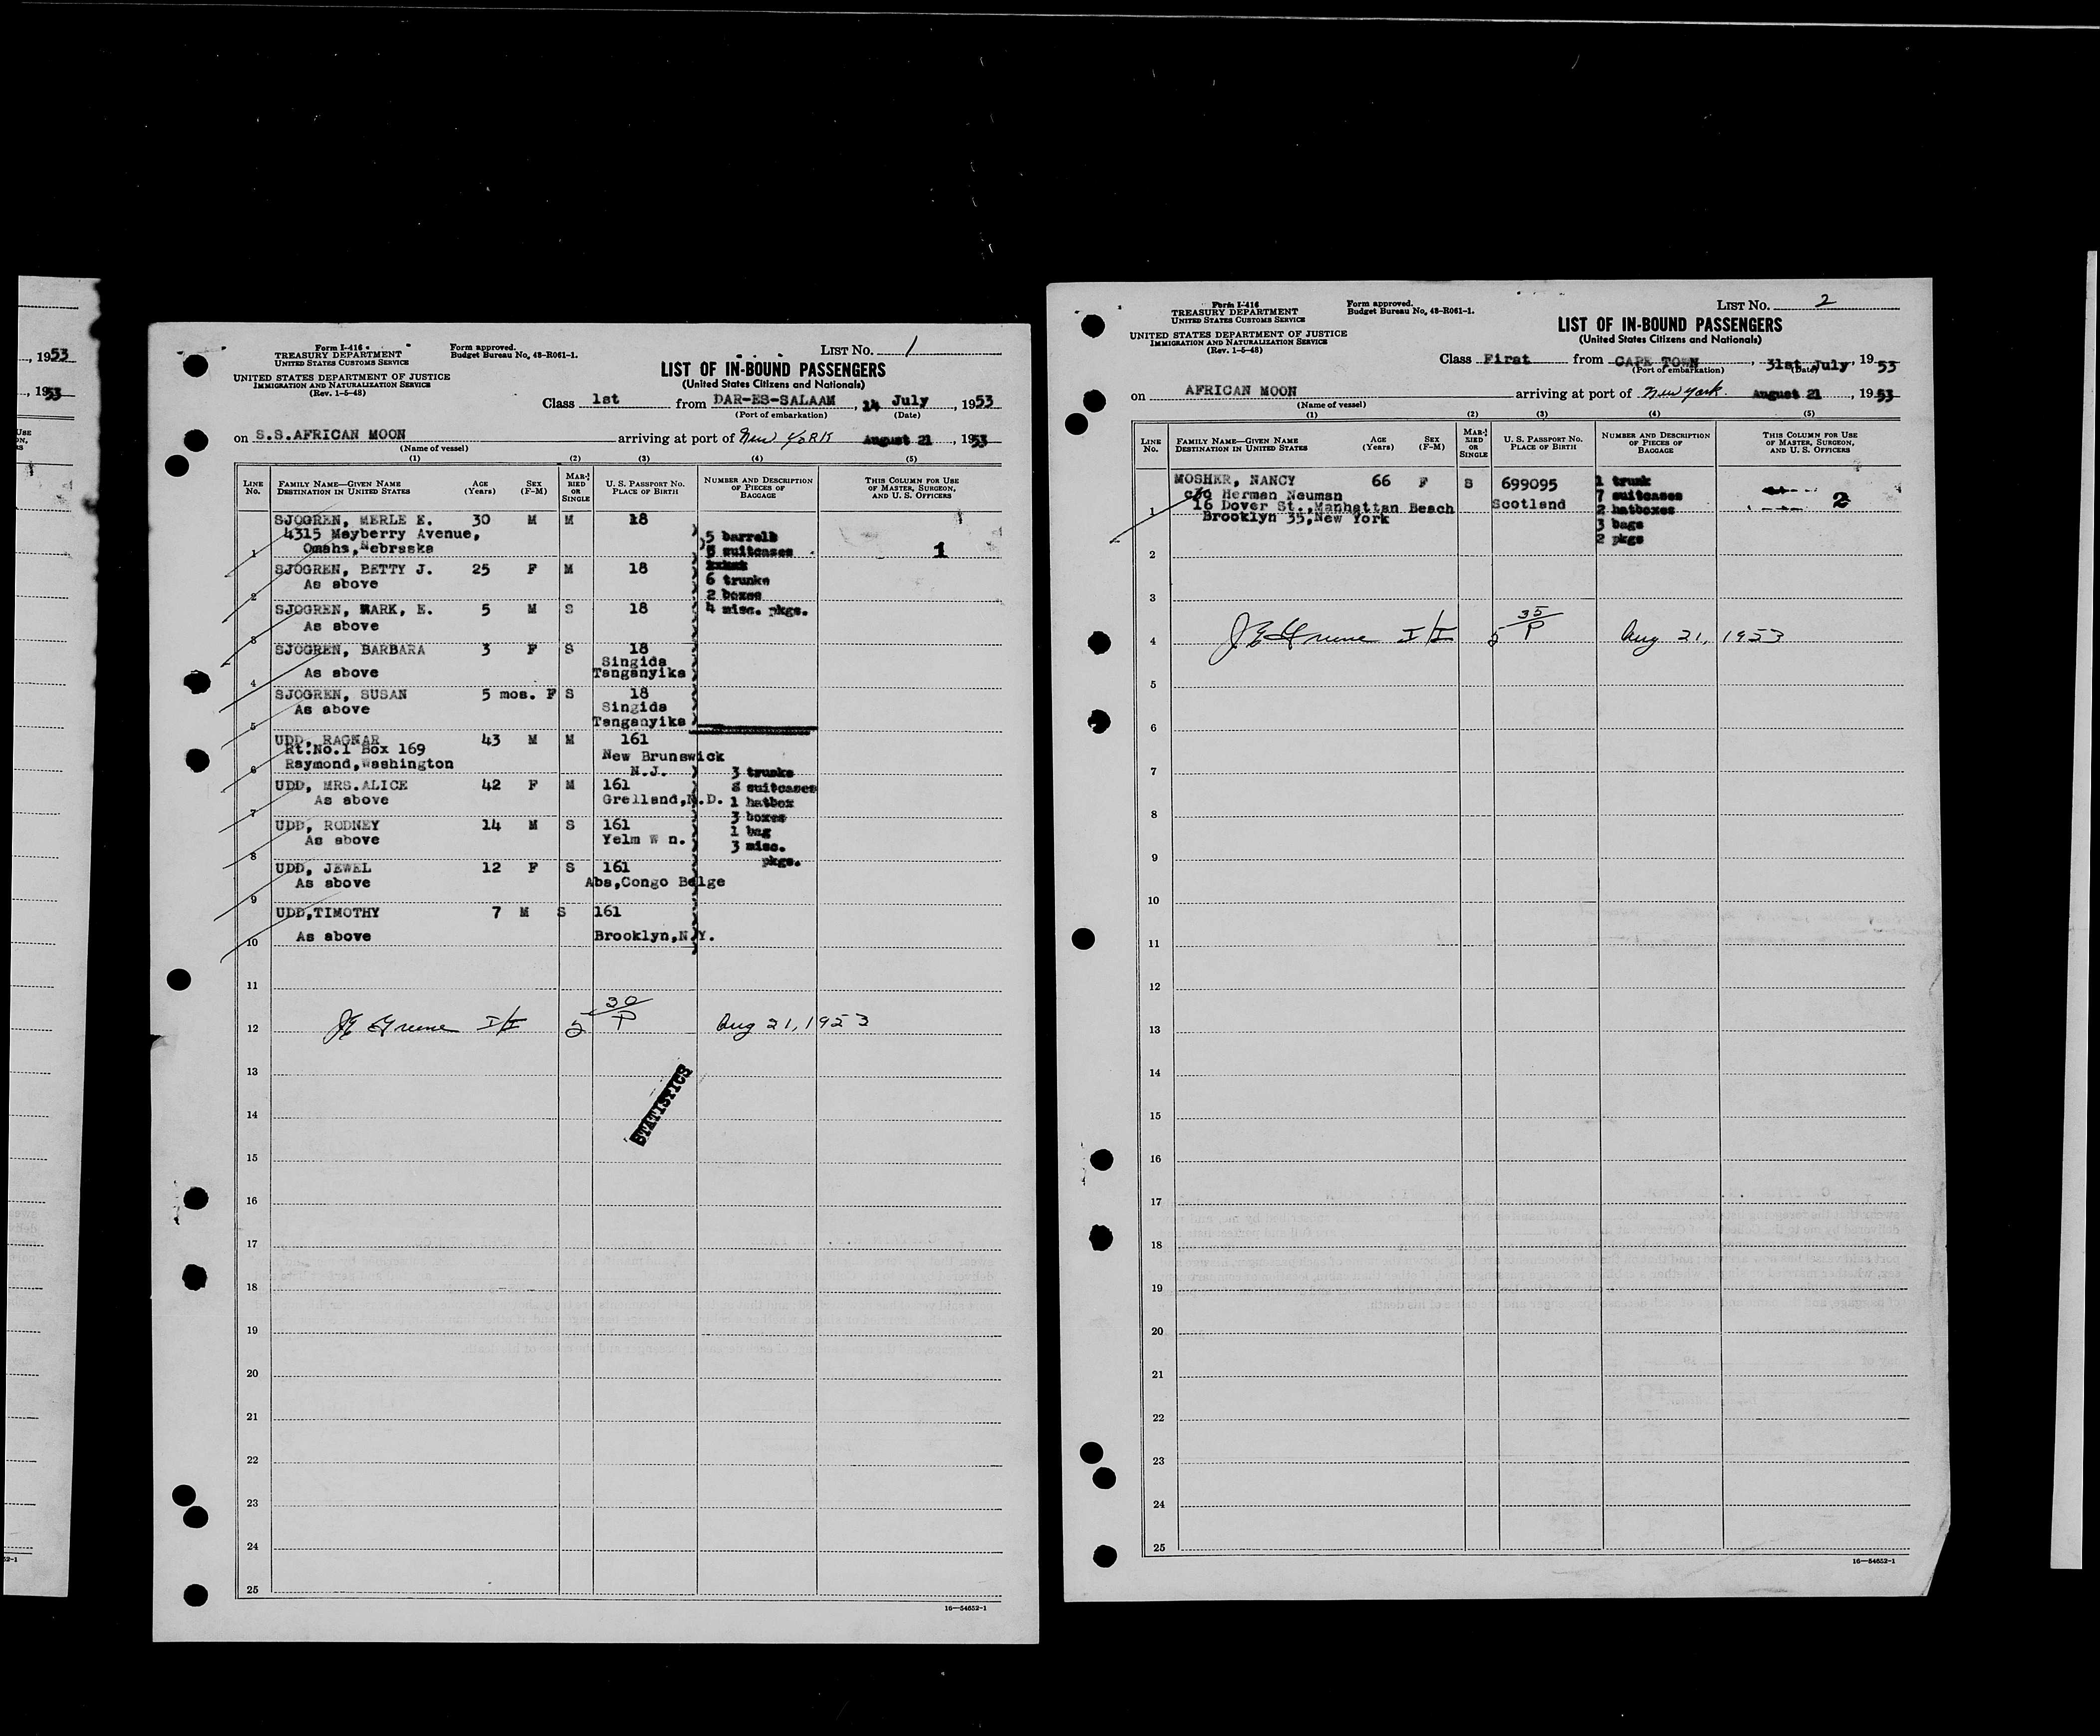 , 1953
, 1953
Form I-416
TREASURY DEPARTMENT
UNITED STATES CUSTOMS SERVICE
Form approved.
Budget Bureau No. 48-R061-1.
LIST NO. 1
UNITED STATES DEPARTMENT OF JUSTICE
IMMIGRATION AND NATURALIZATION SERVICE
(Rev. 1-5-48)
LIST OF IN-BOUND PASSENGERS
(United States Citizens and Nationals)
Class 1st from DAR-ES-SALAAM, 14 July, 1953
(Port of embarkation) (Date)
on S.S.AFRICAN MOON arriving at port of New YORK August 21, 1953
(Name of vessel)
(1) (2) (3) (4) (5)
LINE NO. FAMILY NAME—GIVEN NAME DESTINATION IN UNITED STATES AGE (Years) SEX (F-M) MARRIED OR SINGLE U. S. PASSPORT NO. PLACE OF BIRTH NUMBER AND DESCRIPTION OF PIECES OF BAGGAGE THIS COLUMN FOR USE OF MASTER, SURGEON, AND U. S. OFFICERS
SJOGREN, MERLE E. 30 M M 18
4315 Mayberry Avenue, 5 barrels
1 Omaha, Nebraska 5 suitcases 1
SJOGREN, BETTY J. 25 F M 18
As above 6 trunks
2 2 boxes
SJOGREN, MARK, E. 5 M S 18 4 misc. pkgs.
As above
3
SJOGREN, BARBARA 3 F S 18
Singida
As above Tanganyika
4
SJOGREN, SUSAN 5 mos. F S 18
As above Singida
5 Tanganyika
UDD, RAGNAR 43 M M 161
Rt.No.1 Box 169 New Brunswick
6 Raymond,Washington N.J. 3 trunks
UDD, MRS.ALICE 42 F M 161 8 suitcases
As above Grelland,N.D. 1 hatbox
7 3 boxes
UDD, RODNEY 14 M S 161 1 bag
As above Yelm W n. 3 misc.
8 pkgs.
UDD, JEWEL 12 F S 161
As above Aba,Congo Belge
9
UDD,TIMOTHY 7 M S 161
As above Brooklyn,N.Y.
10
11
12 I/I 5 30/P Aug 21, 1953
13
STATISTICS
14
15
16
17
18
19
20
21
22
23
24
25
16—54652-1
Form I-416
TREASURY DEPARTMENT
UNITED STATES CUSTOMS SERVICE
Form approved.
Budget Bureau No. 48-R061-1.
LIST NO. 2
UNITED STATES DEPARTMENT OF JUSTICE
IMMIGRATION AND NATURALIZATION SERVICE
(Rev. 1-5-48)
LIST OF IN-BOUND PASSENGERS
(United States Citizens and Nationals)
Class First from CAPE TOWN, 31st July, 1953
(Port of embarkation) (Date)
on AFRICAN MOON arriving at port of New York. August 21, 1953
(Name of vessel)
(1) (2) (3) (4) (5)
LINE NO. FAMILY NAME—GIVEN NAME DESTINATION IN UNITED STATES AGE (Years) SEX (F-M) MARRIED OR SINGLE U. S. PASSPORT NO. PLACE OF BIRTH NUMBER AND DESCRIPTION OF PIECES OF BAGGAGE THIS COLUMN FOR USE OF MASTER, SURGEON, AND U. S. OFFICERS
MOSHER, NANCY 66 F S 699095 1 trunk
c/o Herman Neuman 7 suitcases 2
1 16 Dover St.,Manhattan Beach Scotland 2 hatboxes
Brooklyn 35,New York 3 bags
2 2 pkgs
3
4 I/I 5 35/P Aug 21, 1953
5
6
7
8
9
10
11
12
13
14
15
16
17
18
19
20
21
22
23
24
25
16—54652-1